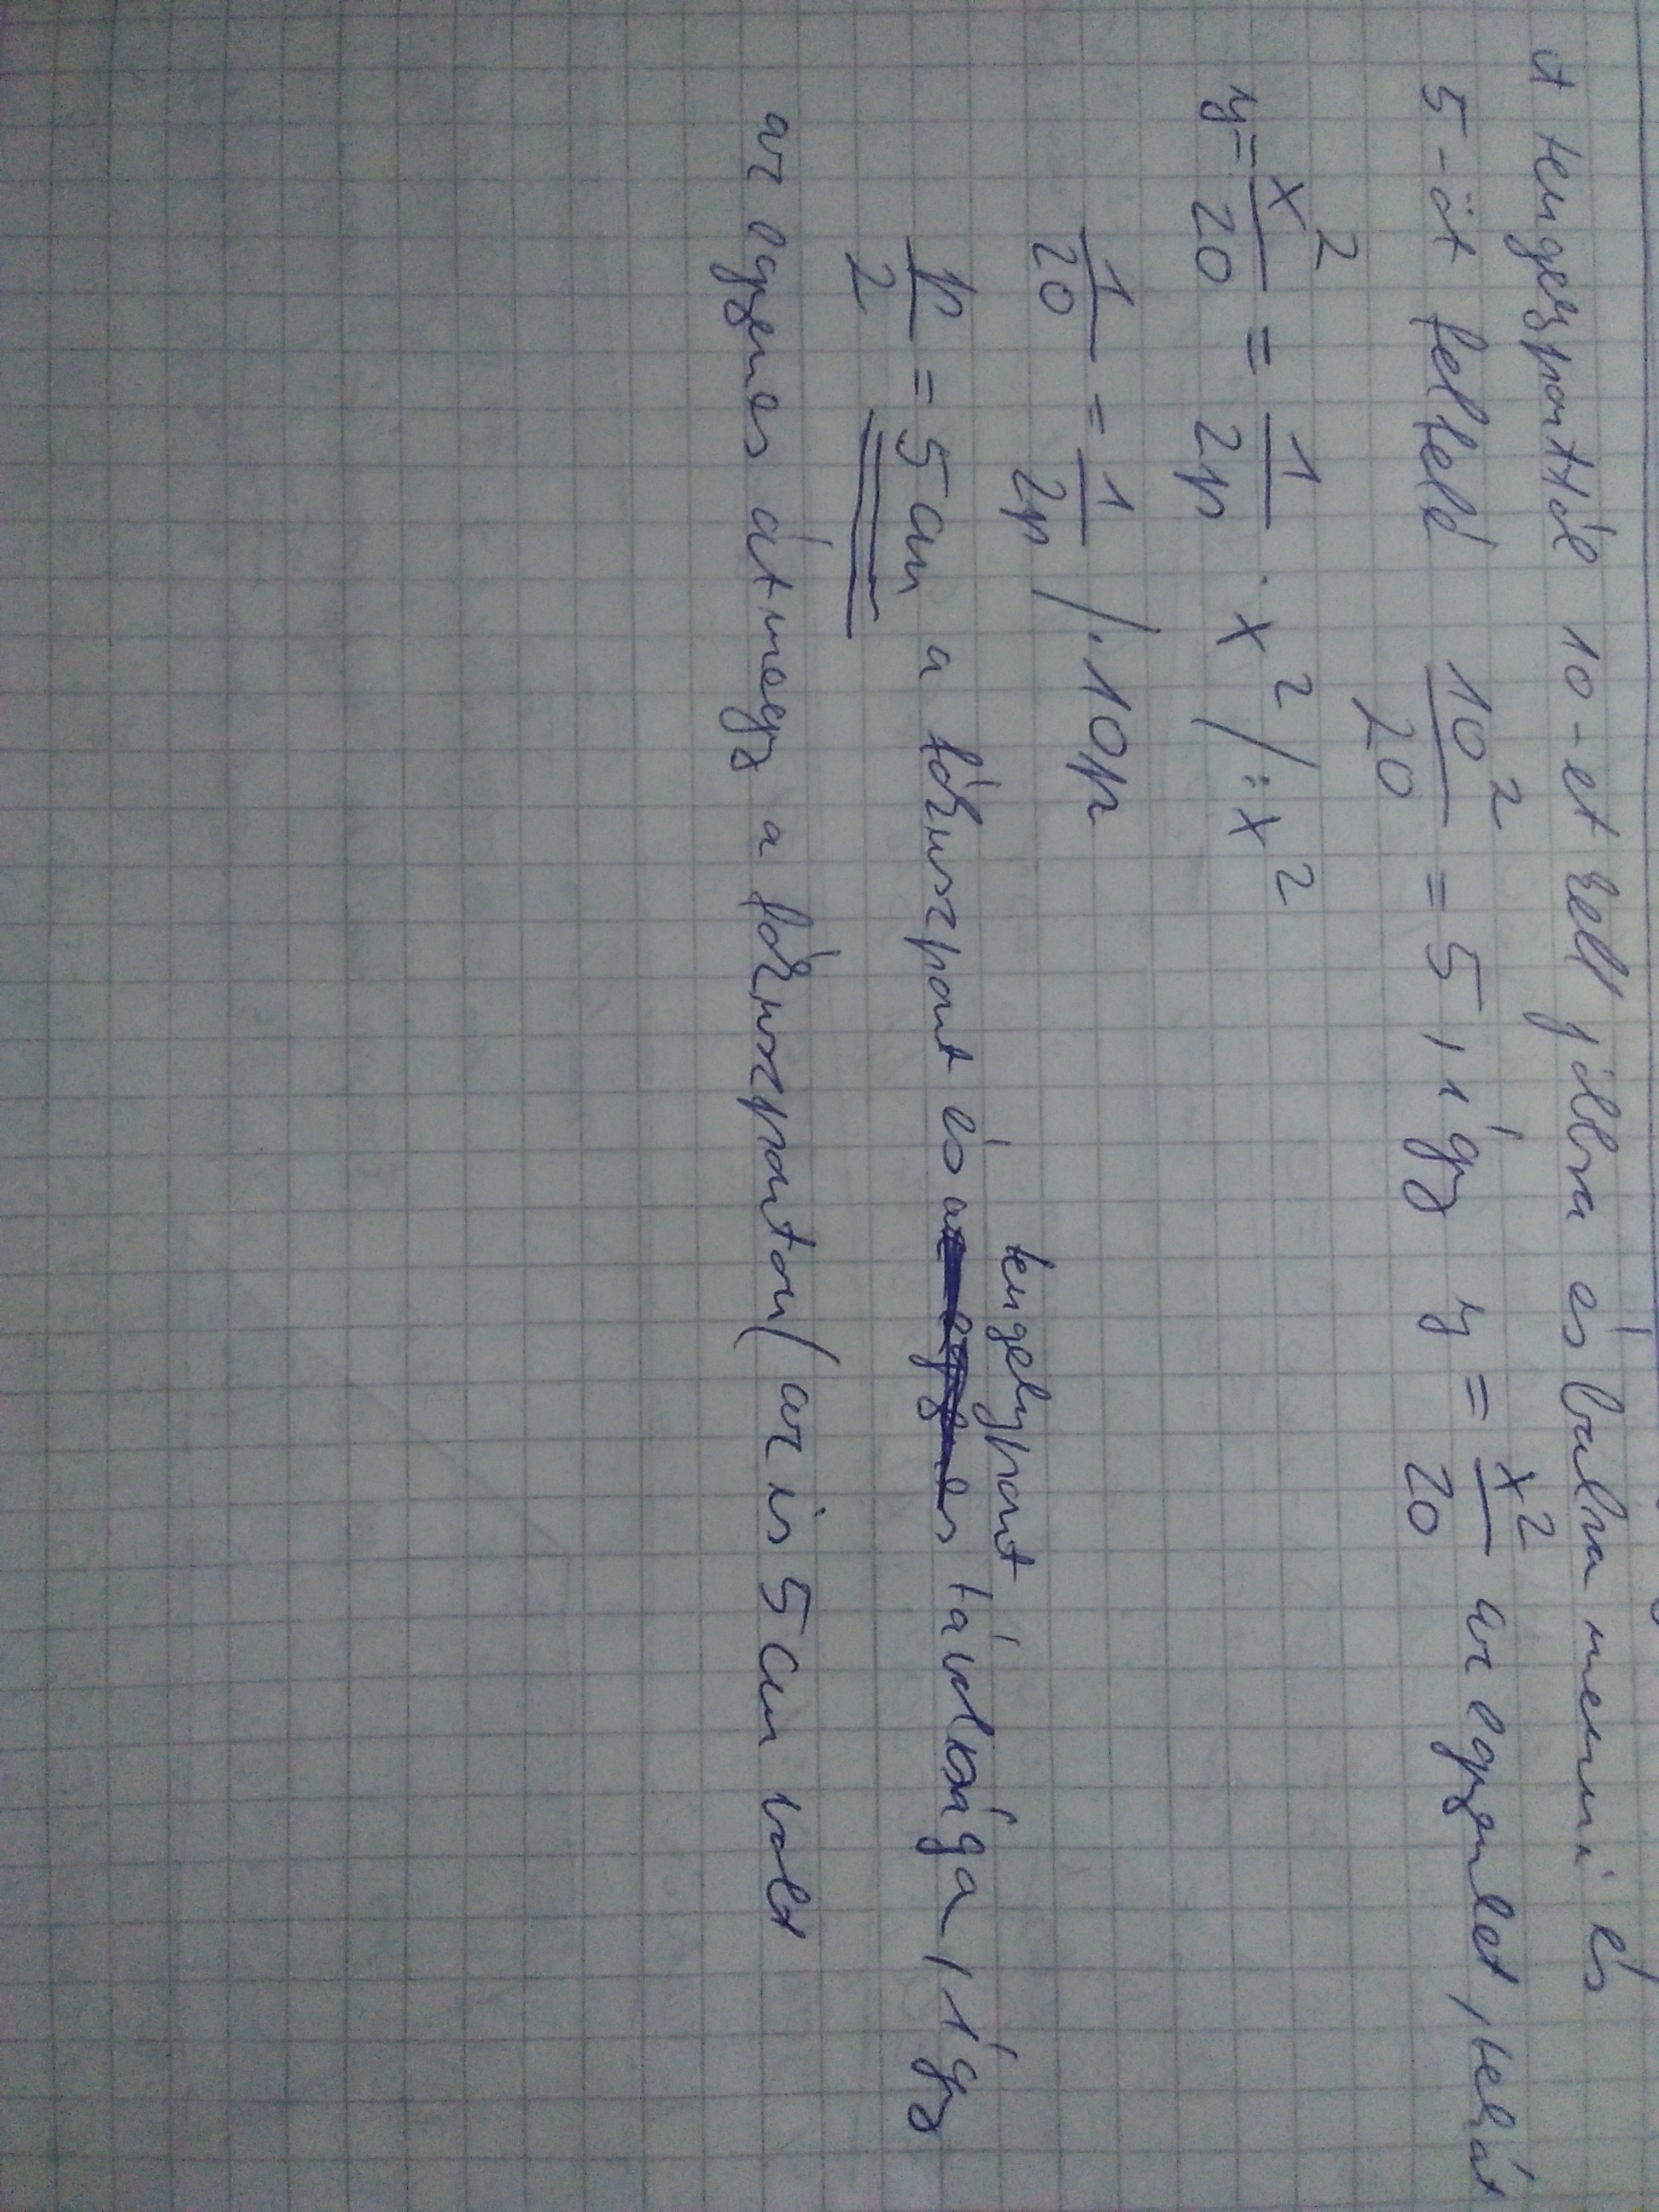 A tengelyponttól 10-et kell jobbra és balra menni és
5-öt felfelé 10²/20 = 5, így y = x²/20 az egyenlet, tehát
y = x²/20 = 1/2p · x² /:x²
1/20 = 1/2p /·10p
p/2 = 5 cm a fókuszpont és a tengelypont távolsága, így
az egyenes átmegy a fókuszponton (az is 5 cm volt